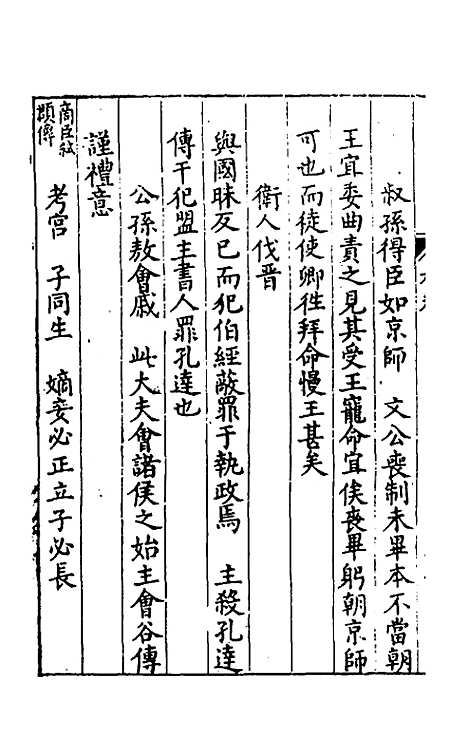 叔孫得臣如京師　文公喪制未畢本不當朝
王宜委曲責之見其受王寵命宜俟喪畢躬朝京師
可也而徒使卿徃拜命慢王甚矣
衛人伐晋
與國昧反已而犯伯經蔽罪于執政焉　主殺孔達
傳干犯盟主書人罪孔達也
公孫敖會戚　此大夫會諸侯之始主會谷傳
謹禮意
商臣弒
頵傳
考宫　子同生　嫡妾必正立子必長